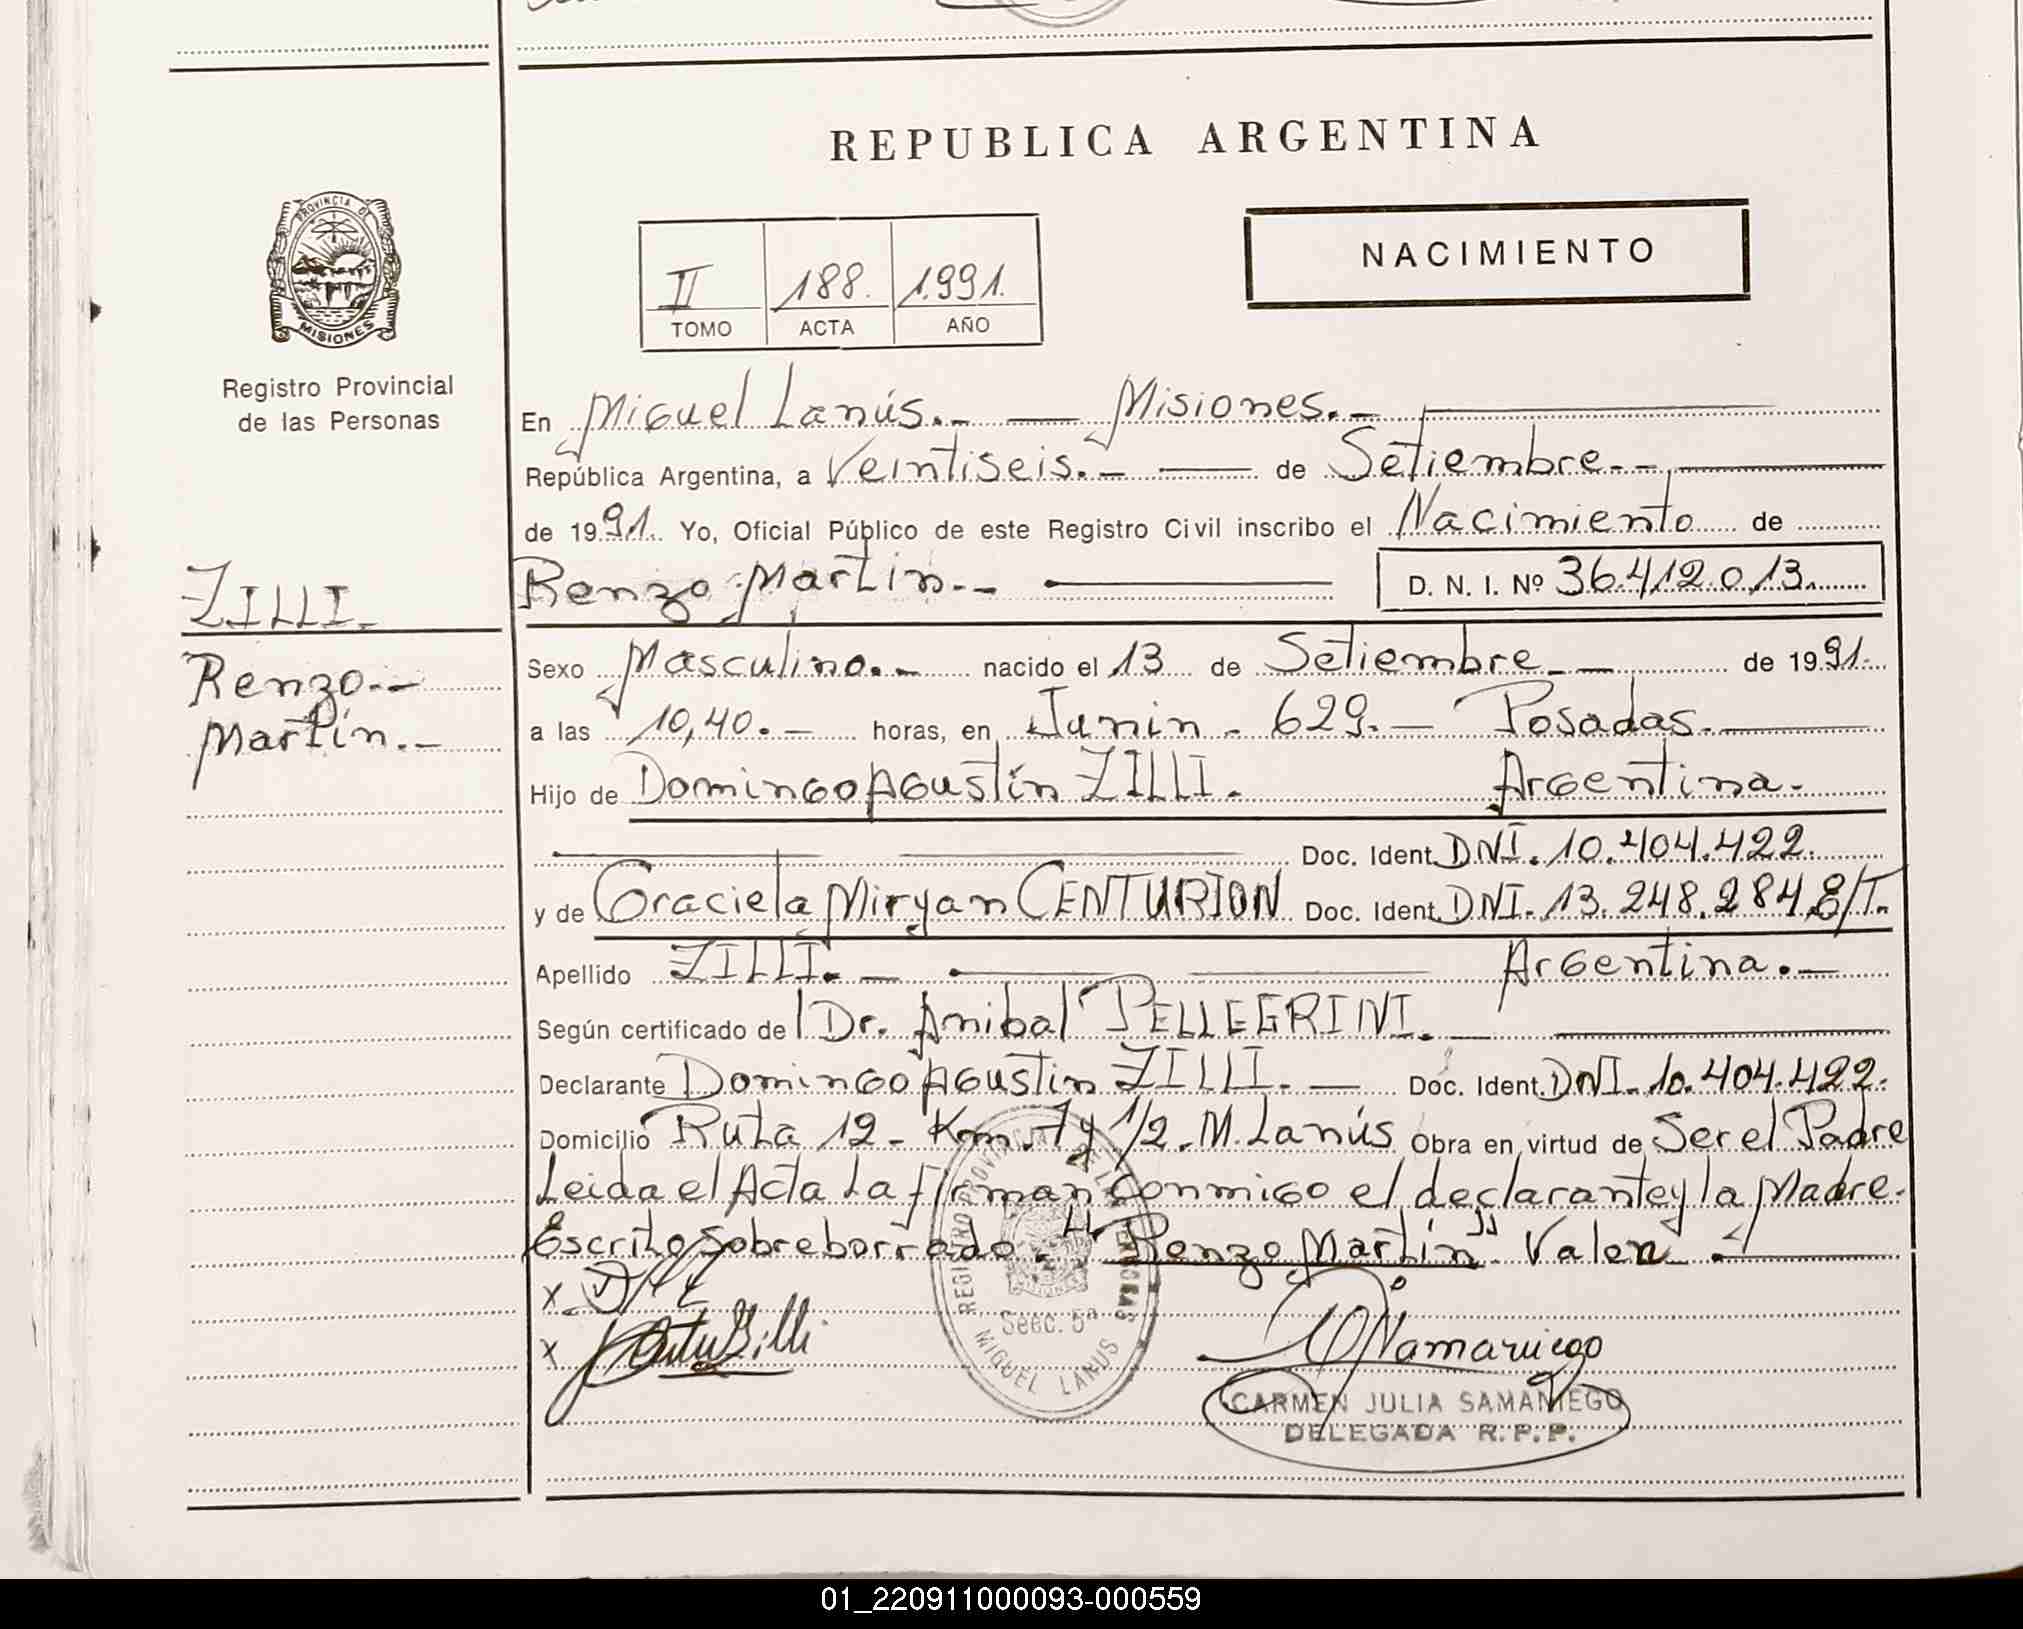 REPUBLICA ARGENTINA
PROVINCIA D
MISIONES
Registro Provincial
de las Personas
II 188. 1.991.
TOMO ACTA AÑO
NACIMIENTO
En Miguel Lanús.- Misiones.-
República Argentina, a Veintiseis.- de Setiembre.-
de 1991. Yo, Oficial Público de este Registro Civil inscribo el Nacimiento de
ZILLI.
Renzo Martin.- D. N. I. Nº 36.412.013.
Renzo.-
Martín.-
Sexo Masculino.- nacido el 13 de Setiembre.- de 1991.
a las 10,40.- horas, en Junin - 629.- Posadas.
Hijo de Domingo Agustín ZILLI. Argentina.
Doc. Ident. DNI. 10.404.422.
y de Graciela Miryan CENTURION Doc. Ident. DNI. 13.248.284 E/T.
Apellido ZILLI.- Argentina.-
Según certificado de Dr. Anibal PELLEGRINI.-
Declarante Domingo Agustin ZILLI.- Doc. Ident. DNI. 10.404.422.
Domicilio Ruta 12 - Km. 7 y 1/2. M. Lanús Obra en virtud de Ser el Padre
Leida el Acta La firman Conmigo el declarante y la Madre.
Escrito Sobreborrado. "Renzo Martín" Valen.
x
x
REGISTRO PROVINCIAL DE LAS PERSONAS
Secc. 5ª
MIGUEL LANUS
CARMEN JULIA SAMANIEGO
DELEGADA R.P.P.
01_220911000093-000559